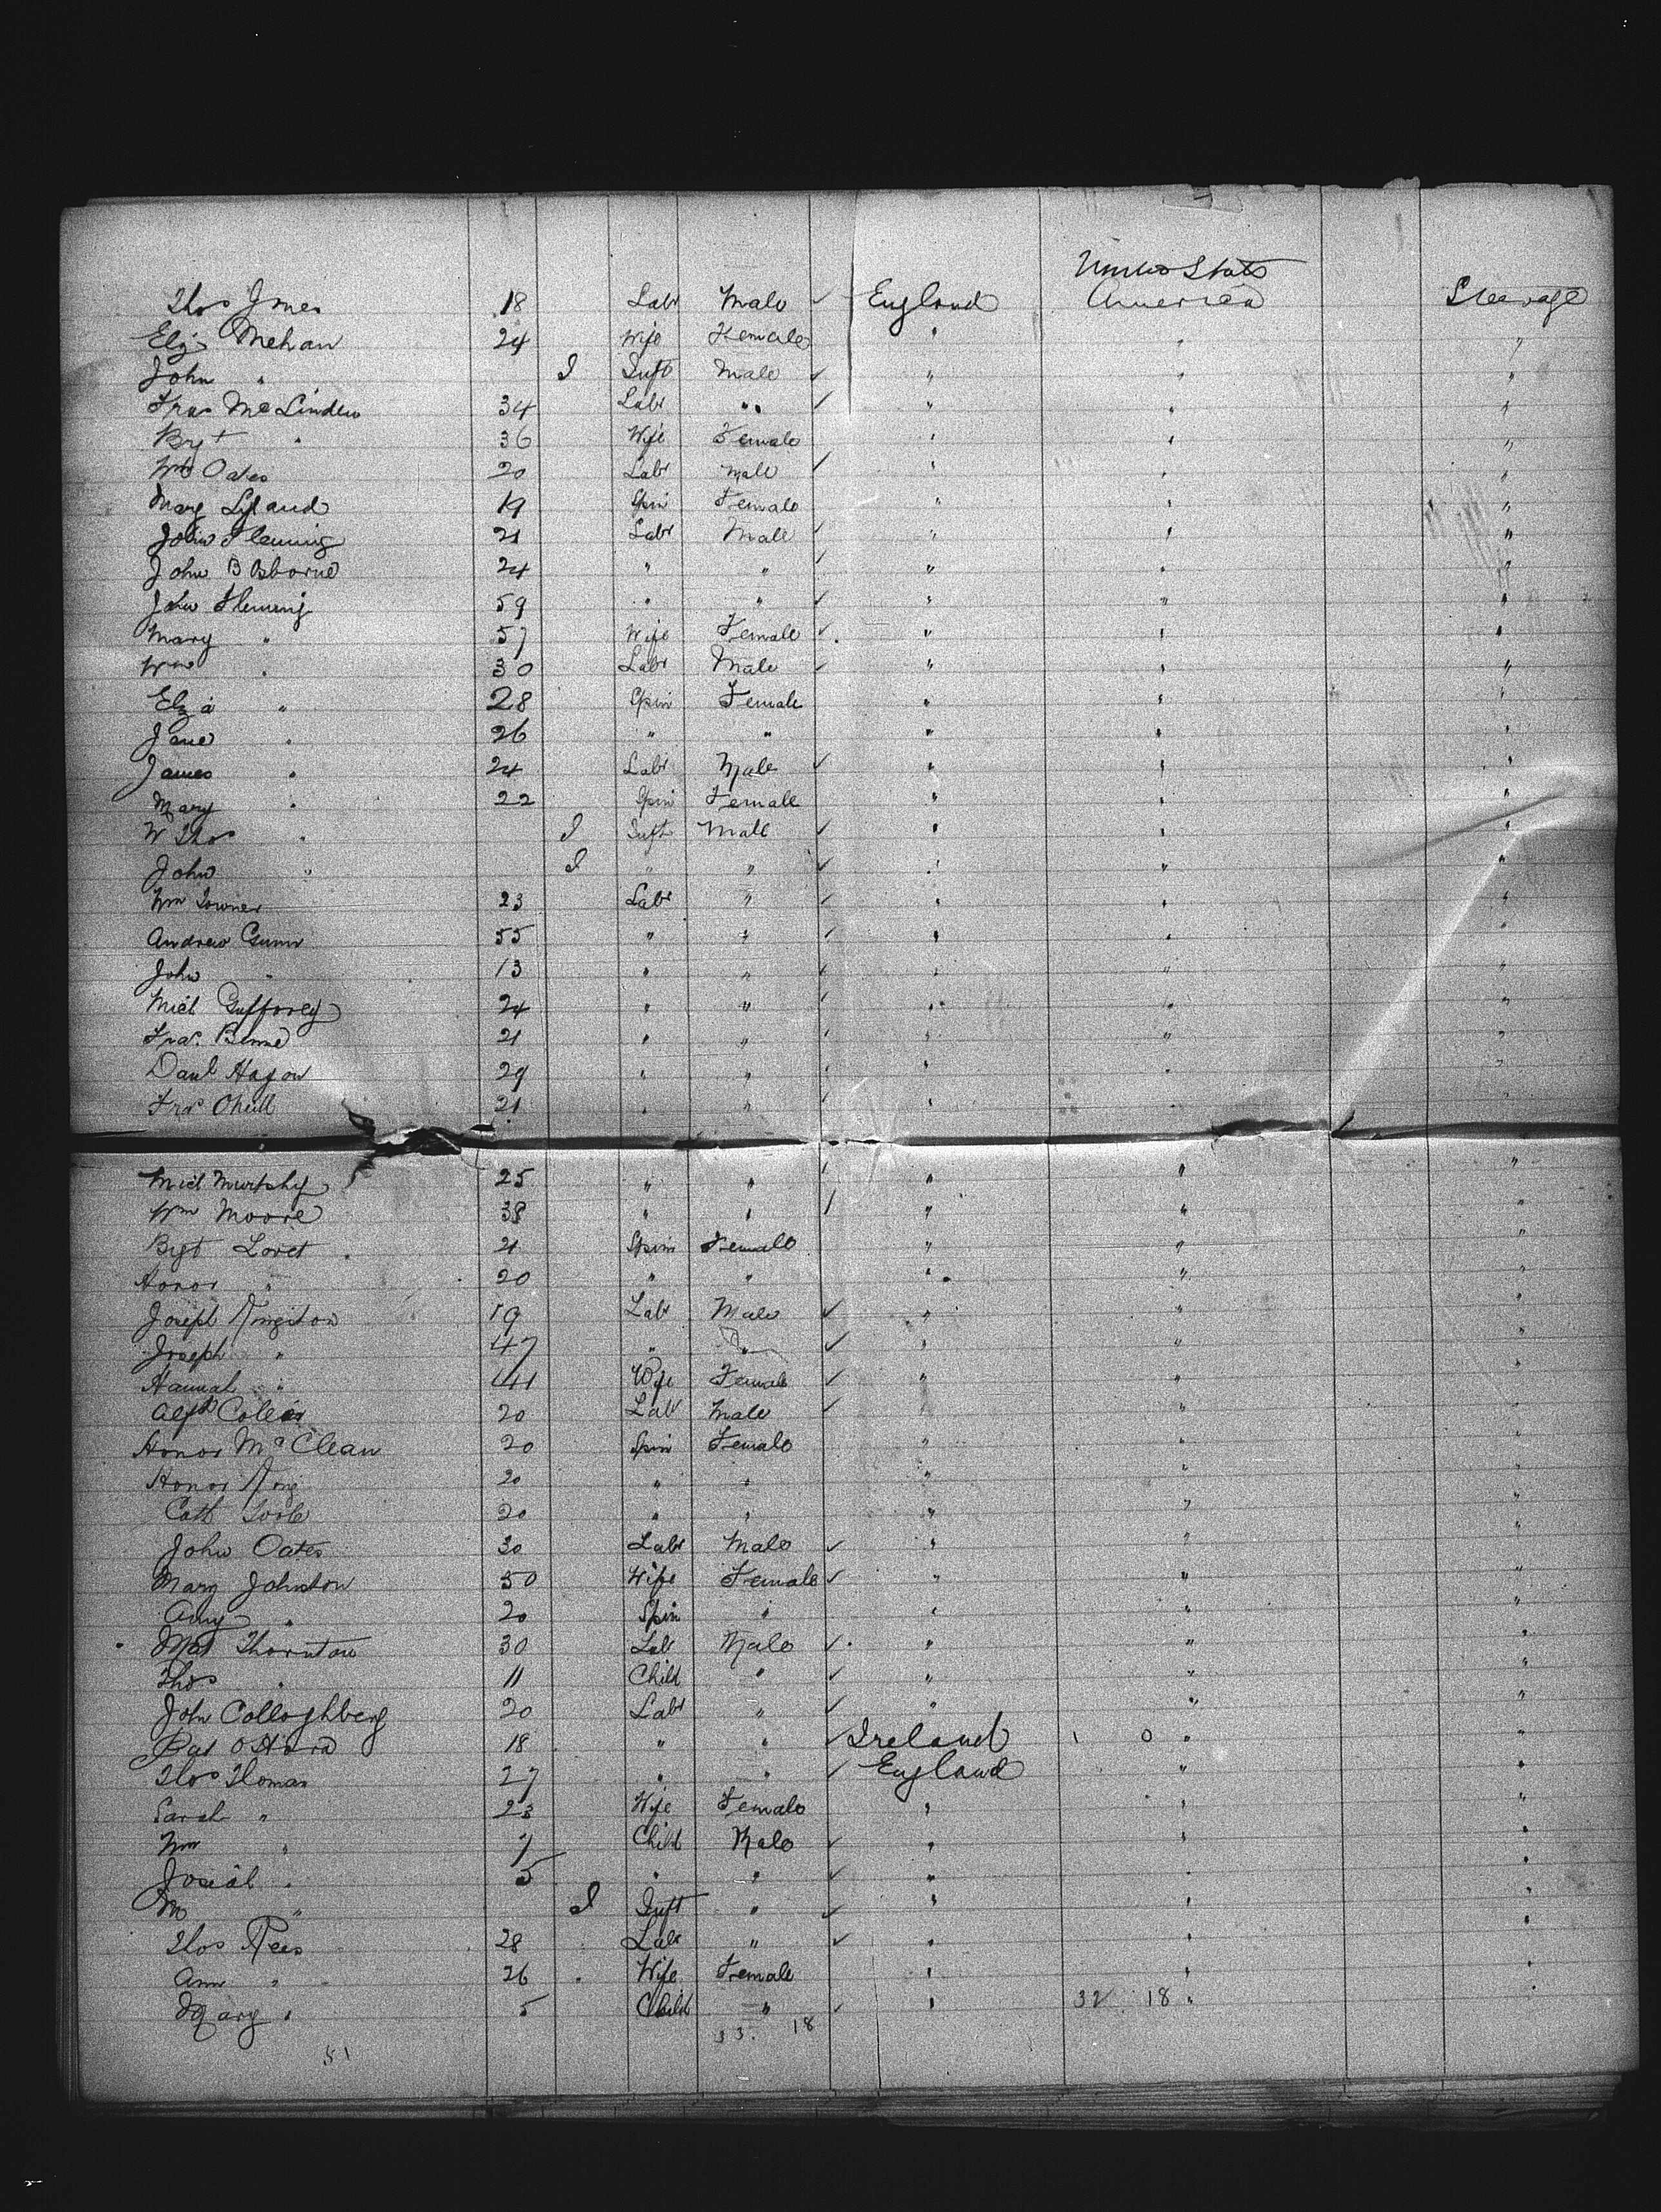 United States
Thos Jones 18 Labr Male ✓ England America Steerage
Eliz Mehan 24 Wife Female " " "
John " I Inft Male ✓ " " "
Fras McLinden 34 Labr " ✓ " " "
Bgt " 36 Wife Female " " "
Wm Oates 20 Labr Male ✓ " " "
Mary Lyland 19 Spin Female " " "
John Fleming 21 Labr Male ✓ " " "
John B Osborne 24 " " ✓ " " "
John Fleming 59 " " ✓ " " "
Mary " 57 Wife Female ✓ " " "
Wm " 30 Labr Male ✓ " " "
Elza " 28 Spin Female " " "
Jane " 26 " " " " "
James " 24 Labr Male ✓ " " "
Mary " 22 Spin Female " " "
W Thos " I Inft Male ✓ " " "
John " I " " ✓ " " "
Wm Towner 23 Labr " ✓ " " "
Andrew Gunn 55 " " ✓ " " "
John " 13 " " ✓ " " "
Micl Guffrey 24 " " ✓ " " "
Fras 21 " " ✓ " " "
Danl Hagon 29 " " ✓ " " "
Fras Oneill 21 " " ✓ " " "
Micl Murphy 25 " " ✓ " " "
Wm Moore 38 " " ✓ " " "
Bgt Lovet 21 Spin Female " " "
Honor " 20 " " " " "
Joseph Kingston 19 Labr Male ✓ " " "
Joseph " 47 " " ✓ " " "
Hannah " 41 Wife Female ✓ " " "
Alfd Coles 20 Labr Male ✓ " " "
Honor McClean 20 Spin Female " " "
Honor King 20 " " " " "
Cath Toole 20 " " " " "
John Oates 30 Labr Male ✓ " " "
Mary Johnston 50 Wife Female ✓ " " "
Amy " 20 Spin " " " "
Mat Thornton 30 Labr Male ✓ " " "
Thos " 11 Child " ✓ " " "
John Colloghberg 20 Labr " ✓ " " "
Pat O Hara 18 " " ✓ Ireland 1 0 " "
Thos Thomas 27 " " ✓ England " "
Sarah " 23 Wife Female " " "
Wm " 7 Child Male ✓ " " "
Josiah " 5 " " ✓ " " "
" I Inft " ✓ " " "
Thos Rees 28 Labr " ✓ " " "
Ann " 26 Wife Female " " "
Mary " 5 Child " ✓ " 32 18 " "
33. 18
51